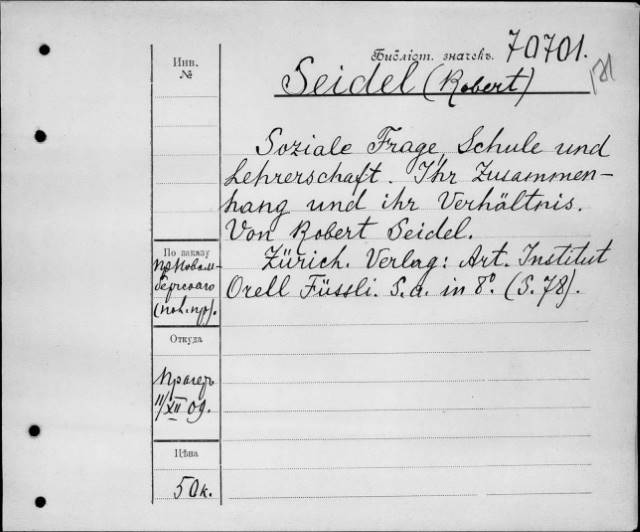 Инв.
№
Библіот. значекъ. 70701.
Seidel (Robert)
Soziale Frage, Schule und
Lehrerschaft. Ihr Zusammen-
hang und ihr Verhältnis.
Von Robert Seidel.
Zürich. Verlag: Art. Institut
Orell Füssli. S.a. in 8º. (S. 78).
По заказу
Откуда
Прагеръ
11/XII 09.
Цѣна
50к.